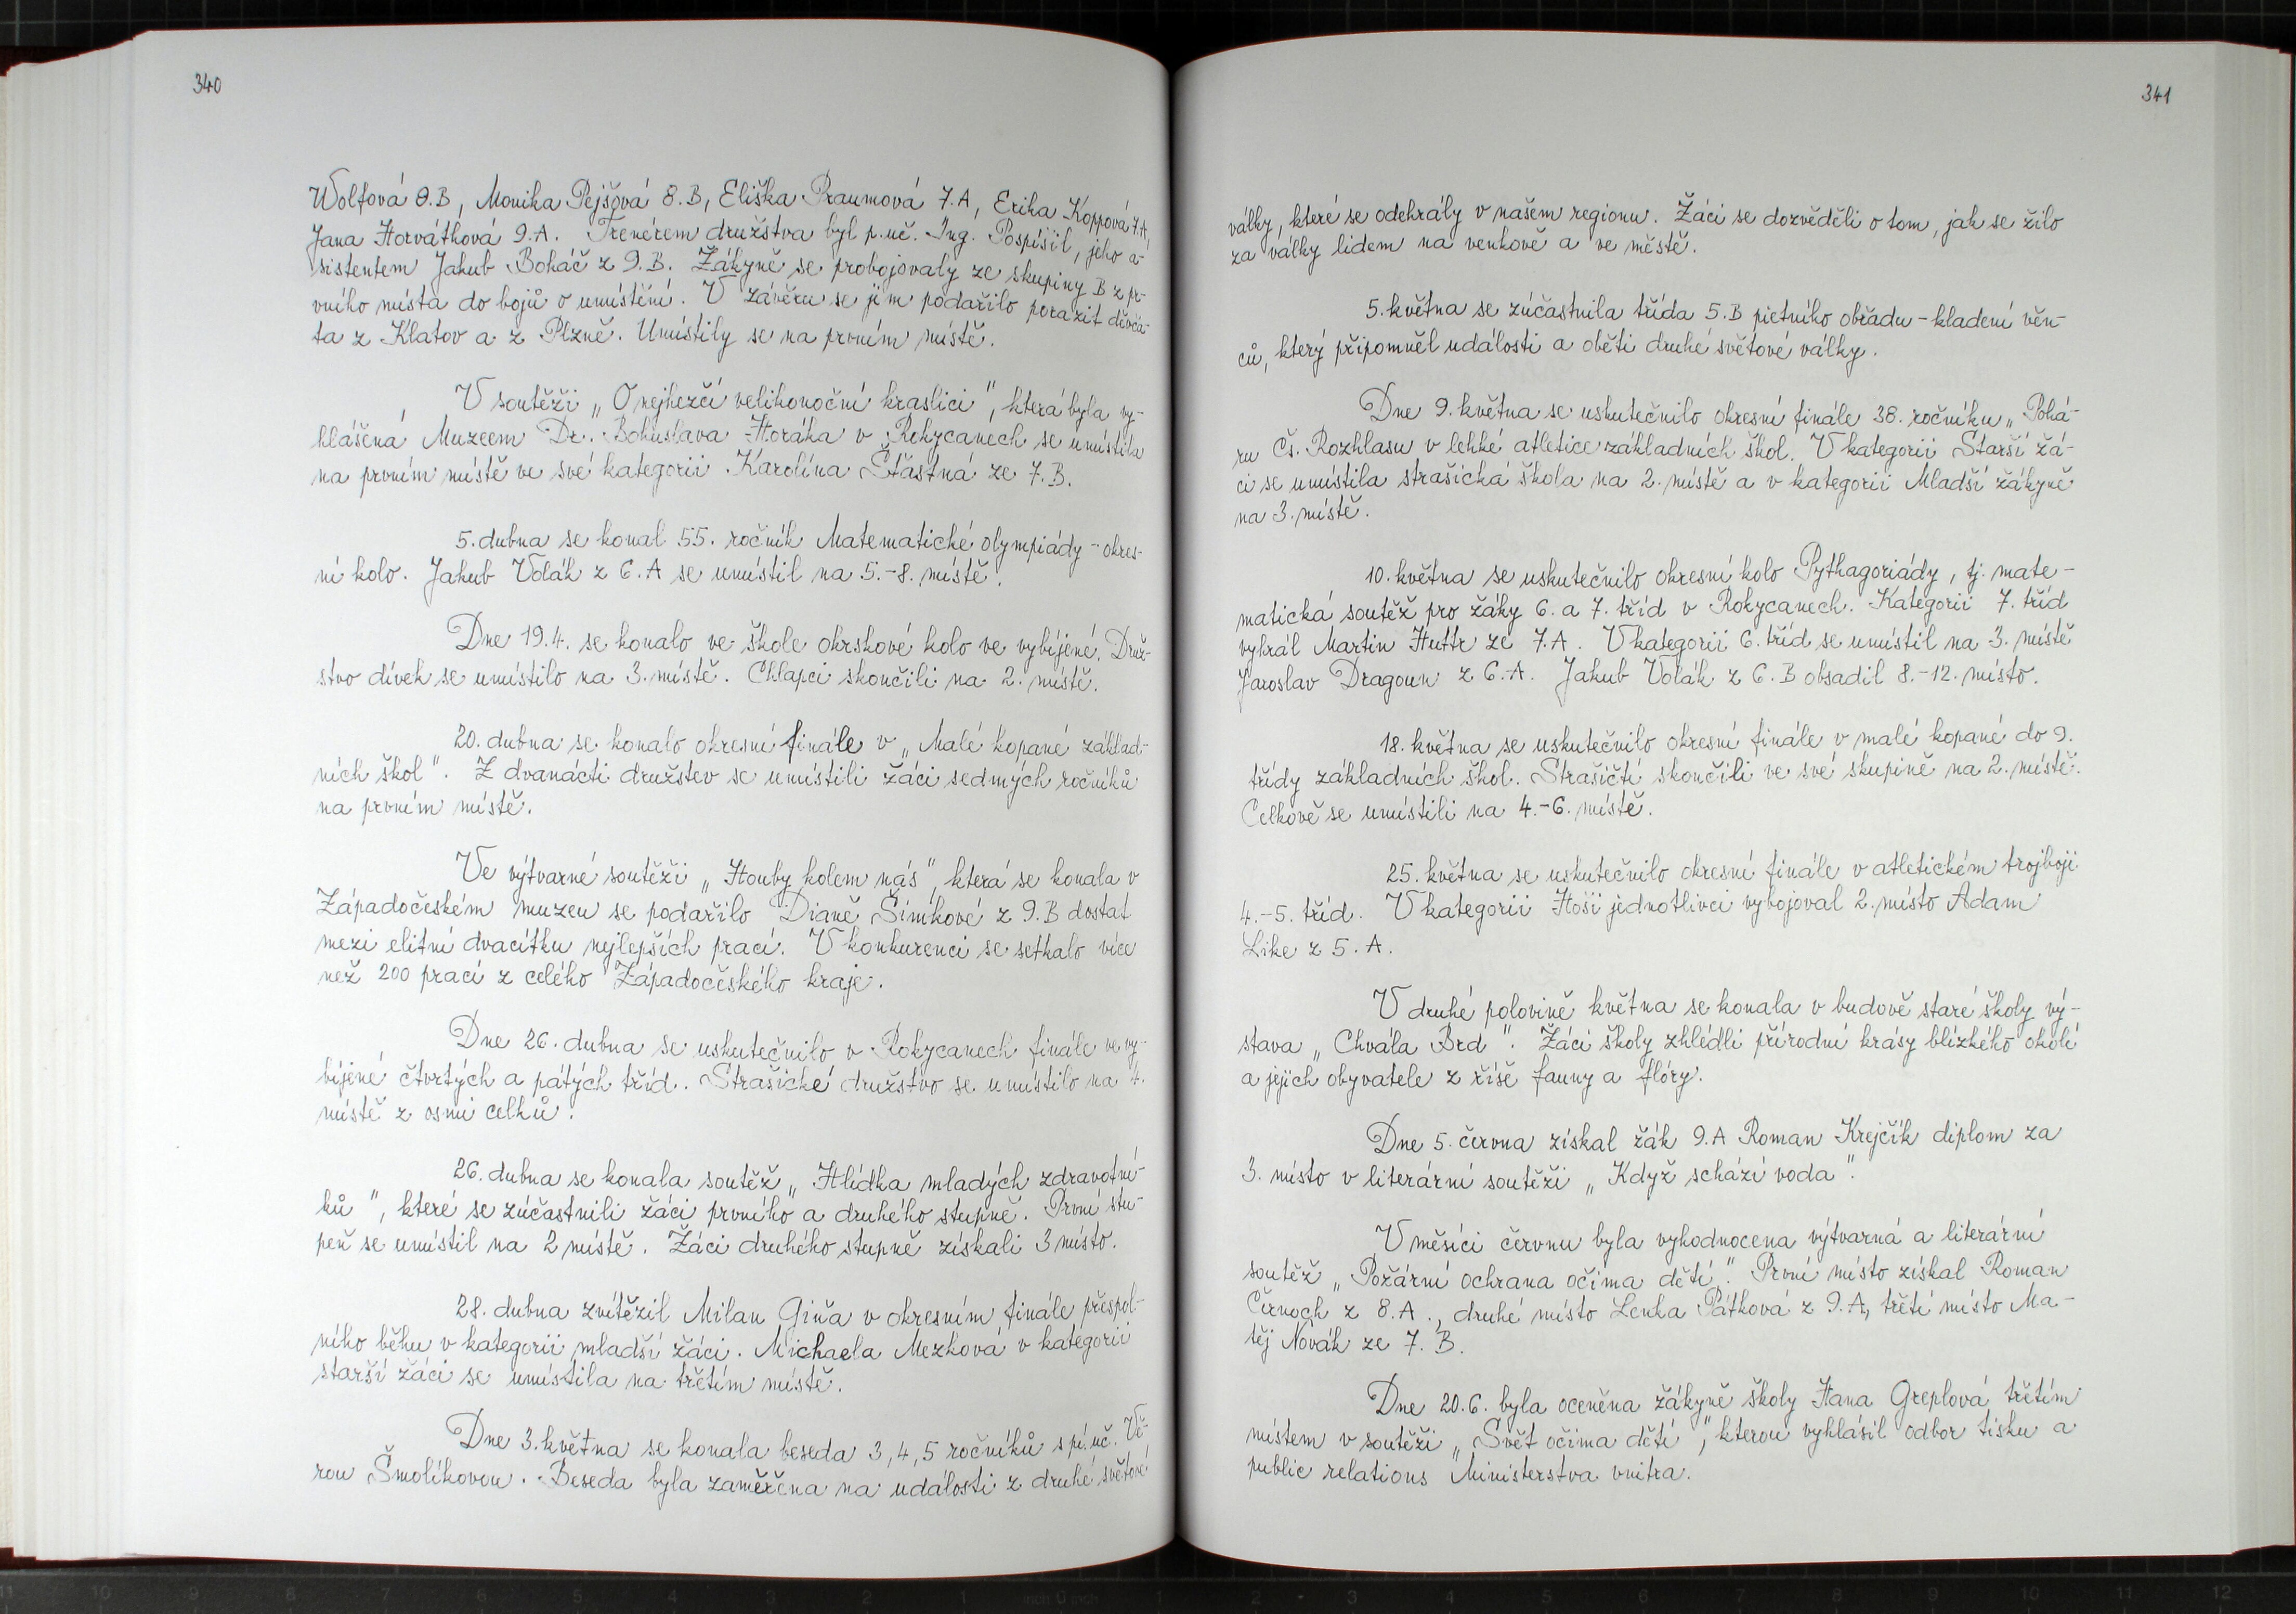 340
Wolfová 8.B, Monika Pejšová 8.B, Eliška Praumová 7.A, Erika Koppová 7.A,
Jana Horváthová 9.A. Trenérem družstva byl p.uč. Ing. Pospíšil, jeho a-
sistentem Jakub Boháč z 9.B. Žákyně se probojovaly ze skupiny B z pr-
vního místa do bojů o umístění. V závěru se jim podařilo porazit děvča-
ta z Klatov a z Plzně. Umístily se na prvním místě.
V soutěži „O nejhezčí velikonoční kraslici", která byla vy-
hlášená Muzeem Dr. Bohuslava Horáka v Rokycanech se umístila
na prvním místě ve své kategorii Karolína Šťastná ze 7.B.
5. dubna se konal 55. ročník Matematické olympiády - okres-
ní kolo. Jakub Volák z 6.A se umístil na 5.-8. místě.
Dne 19.4. se konalo ve škole okrskové kolo ve vybíjené. Druž-
stvo dívek se umístilo na 3. místě. Chlapci skončili na 2. místě.
20. dubna se konalo okresní finále v „Malé kopané základ-
ních škol". Z dvanácti družstev se umístili žáci sedmých ročníků
na prvním místě.
Ve výtvarné soutěži „Houby kolem nás", která se konala v
Západočeském muzeu se podařilo Dianě Šimkové z 9.B dostat
mezi elitní dvacítku nejlepších prací. V konkurenci se setkalo více
než 200 prací z celého Západočeského kraje.
Dne 26. dubna se uskutečnilo v Rokycanech finále ve vy-
bíjené čtvrtých a pátých tříd. Strašické družstvo se umístilo na 4.
místě z osmi celků.
26. dubna se konala soutěž „Hlídka mladých zdravotní-
ků", které se zúčastnili žáci prvního a druhého stupně. První stu-
peň se umístil na 2 místě. Žáci druhého stupně získali 3 místo.
28. dubna zvítězil Milan Giňa v okresním finále přespol-
ního běhu v kategorii mladší žáci. Michaela Mezková v kategorii
starší žáci se umístila na třetím místě.
Dne 3. května se konala beseda 3, 4, 5 ročníků s pí. uč. Vě-
rou Šmolíkovou. Beseda byla zaměřena na události z druhé světové
341
války, které se odehrály v našem regionu. Žáci se dozvěděli o tom, jak se žilo
za války lidem na venkově a ve městě.
5. května se zúčastnila třída 5.B pietního obřadu - kladení věn-
ců, který připomněl události a oběti druhé světové války.
Dne 9. května se uskutečnilo okresní finále 38. ročníku „Pohá-
ru Čs. Rozhlasu v lehké atletice základních škol. V kategorii Starší žá-
ci se umístila strašická škola na 2. místě a v kategorii Mladší žákyně
na 3. místě.
10. května se uskutečnilo okresní kolo Pythagoriády, tj. mate-
matická soutěž pro žáky 6. a 7. tříd v Rokycanech. Kategorii 7. tříd
vyhrál Martin Huttr ze 7.A. V kategorii 6. tříd se umístil na 3. místě
Jaroslav Dragoun z 6.A. Jakub Volák z 6.B obsadil 8.-12. místo.
18. května se uskutečnilo okresní finále v malé kopané do 9.
třídy základních škol. Strašičtí skončili ve své skupině na 2. místě.
Celkově se umístili na 4.-6. místě.
25. května se uskutečnilo okresní finále v atletickém trojboji
4.-5. tříd. V kategorii Hoši jednotlivci vybojoval 2. místo Adam
Like z 5.A.
V druhé polovině května se konala v budově staré školy vý-
stava „Chvála Brd". Žáci školy zhlédli přírodní krásy blízkého okolí
a jejich obyvatele z říše fauny a flóry.
Dne 5. června získal žák 9.A Roman Krejčík diplom za
3. místo v literární soutěži „Když schází voda".
V měsíci červnu byla vyhodnocena výtvarná a literární
soutěž „Požární ochrana očima dětí". První místo získal Roman
Černoch z 8.A., druhé místo Lenka Pátková z 9.A, třetí místo Ma-
těj Novák ze 7.B.
Dne 20.6. byla oceněna žákyně školy Hana Greplová třetím
místem v soutěži „Svět očima dětí", kterou vyhlásil odbor tisku a
public relations Ministerstva vnitra.